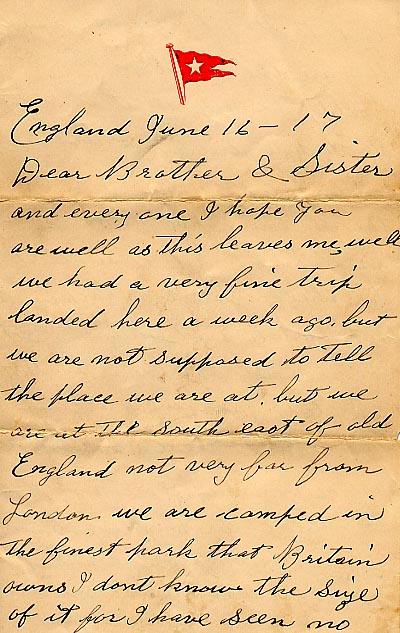 England June 16 - 17
Dear Brother & Sister
and every one I hope you
are well as this leaves me, well
we had a very fine trip
landed here a week ago. but
we are not supposed to tell
the place we are at. but we
are at the south east of old
England not very far from
London. we are camped in
the finest park that Britain
owns I dont know the size
of it for I have seen no